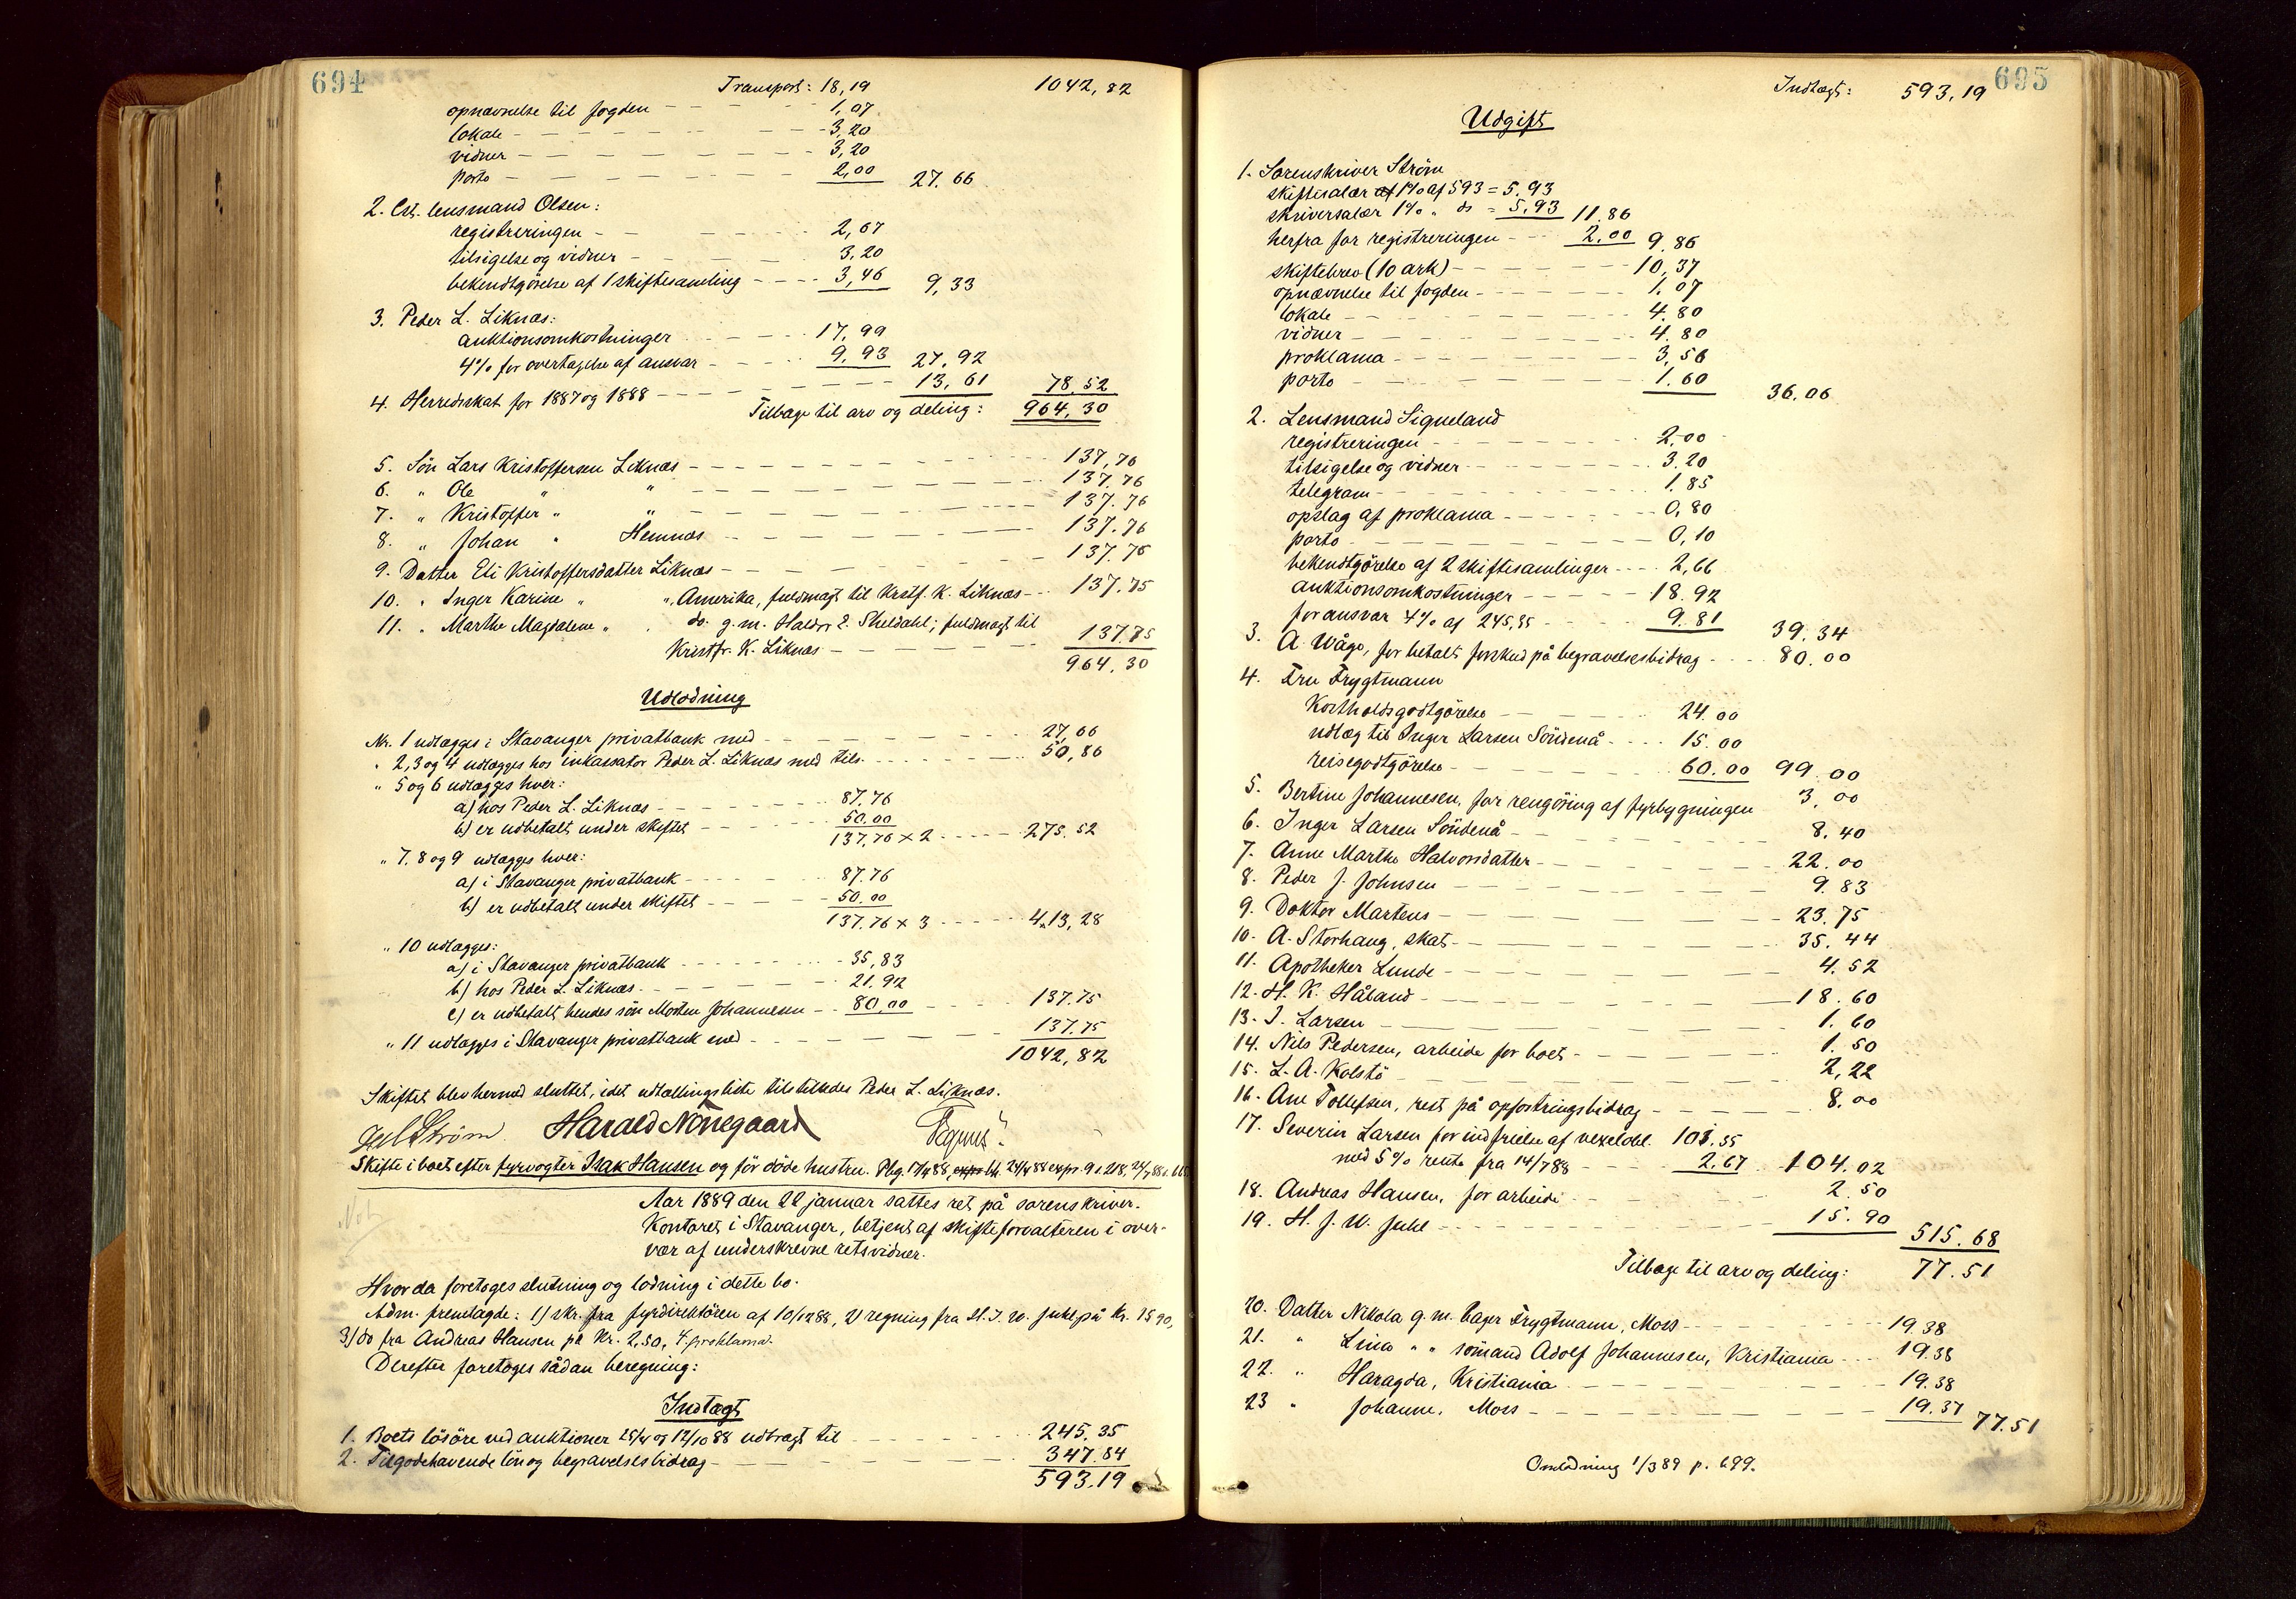 694
Transport: 18,19 1042,82
opnævnelse til fogden 1,07
lokale 3,20
vidner 3,20
porto 2,00 27.66
2. Cst. lensmand Olsen:
registreringen 2,67
tilsigelse og vidner 3,20
bekendtgörelse af 1 skiftesamling 3,46 9,33
3. Peder L. Liknæs:
auktionsomkostninger 17,99
4% for overtagelse af ansvar 9,93 27,92
4. Herredsskat for 1887 og 1888 13,61 78,52
Tilbage til arv og deling: 964,30
5. Sön Lars Kristoffersen Liknæs 137,76
6. " Ole " " 137.76
7. " Kristoffer " " 137.76
8. " Johan " Hemnæs 137.76
9. Datter Eli Kristoffersdatter Liknæs 137.76
10. " Inger Karine " " Amerika, fuldmagt til Kristf. K. Liknæs 137.75
11. " Marthe Magdalene " " do. g.m. Haldor E. Sheldahl; fuldmagt til
Kristfr. K. Liknæs 137.75
964.30
Udlodning
Nr. 1 udlægges i Stavanger privatbank med 27,66
" 2, 3 og 4 udlægges hos inkassator Peder L. Liknæs med tils. 50,86
" 5 og 6 udlægges hver:
a) hos Peder L. Liknæs 87.76
b) er udbetalt under skiftet 50.00
137,76 x 2 275.52
" 7, 8 og 9 udlægges hver:
a) i Stavanger privatbank 87.76
b) er udbetalt under skiftet 50.00
137.76 x 3 413,28
" 10 udlægges:
a) i Stavanger privatbank 35,83
b) hos Peder L. Liknæs 21.92
c) er udbetalt hendes sön Morten Johannesen 80,00 137.75
" 11 udlægges i Stavanger privatbank med 137.75
1042,82
Skiftet blev hermed sluttet, idet udtællingsliste tilstilledes Peder L. Liknæs.
Ström Harald Nörregaard
Skifte i boet efter fyrvogter Isak Hansen og för döde hustru.
Aar 1889 den 22 januar sattes ret på sorenskriver-
kontoret i Stavanger, betjent af skifteforvalteren i over-
vær af underskrevne retsvidner.
Hvor da foretoges slutning og lodning i dette bo.
Adm. fremlagde: 1) skr. fra fyrdirektören af 10/12 88, 2) regning fra H. J. W. Juhl på Kr. 15.90,
3) do fra Andreas Hansen på Kr. 2,50, 4. proklama.
Derefter foretoges sådan beregning:
Indtægt
1. Boets lösöre ved auktioner og 12/10 88 udbragt til 245.35
2. Tilgodehavende lön og begravelsesbidrag 347.84
593.19
695
Indtægt: 593,19
Udgift
1. Sorenskriver Ström
skiftesalær af 1% af 593 = 5.93
skriversalær 1% " do = 5,93 11.86
herfra for registreringen 2.00 9.86
skiftebrev (10 ark) 10,37
opnævnelse til fogden 1.07
lokale 4.80
vidner 4.80
proklama 3,56
porto 1.60 36.06
2. Lensmand Sigveland
registreringen 2.00
tilsigelse og vidner 3.20
telegram 1.85
opslag af proklama 0,80
porto 0,10
bekendtgörelse af 2 skiftesamlinger 2,66
auktionsomkostninger 18.92
for ansvar 4% af 245,35 9.81 39.34
3. A. Wåge, for betalt forskud på begravelsesbidrag 80.00
4. Fru Frygtmann
Kostholdsgodtgörelse 24.00
udlæg til Inger Larsen Söndenå 15.00
reisegodtgörelse 60.00 99.00
5. Bertine Johannesen, for rengöring af fyrbygningen 3.00
6. Inger Larsen Söndenå 8.40
7. Anne Marthe Halvorsdatter 22.00
8. Peder J. Johnsen 9.83
9. Doktor Martens 23.75
10. A. Storhaug, skat 35.44
11. Apotheker Lunde 4.52
12. H. K. Håland 18.60
13. I. Larsen 1.60
14. Nils Pedersen, arbeide for boet 1.50
15. L. A. Kolstö 2,22
16. Ane Tollefsen, rest på opfostringsbidrag 8.00
17. Severin Larsen for indfrielse af vexelobl. 101.35
med 5% rente fra 14/7 88 2.67 104.02
18. Andreas Hansen, for arbeide 2.50
19. H. J. W. Juhl 15.90 515.68
Tilbage til arv og deling: 77.51
20. Datter Nikola g.m. bager Frygtmann, Moss 19.38
21. " Lina " " sömand Adolf Johannesen, Kristiania 19.38
22. " Haragda, Kristiania 19.38
23 " Johanne, Moss 19.37 77.51
Omlodning 1/3 89 p. 699.